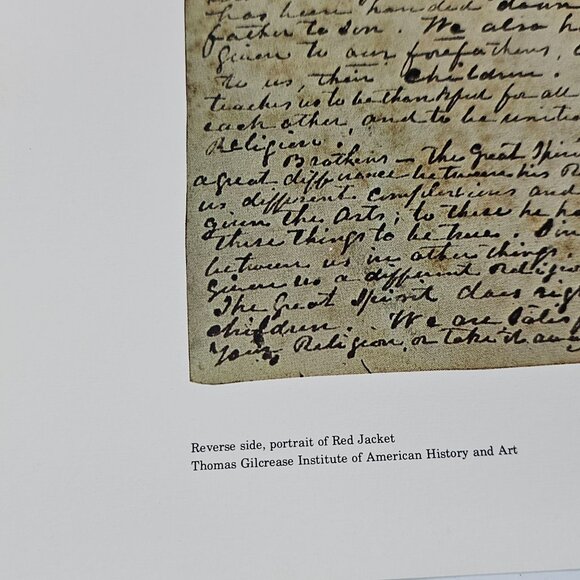 has been handed down
father to son. We also ha
given to our forefathers, a
to us, their children.
teaches us to be thankful for all
each other, and to be unite
Religion.
Brothers — The Great Spiri
a great difference between his R
us different complexions and
given the Arts; to these he ha
these things to be true.
between us in other things.
given us a different religio
The Great Spirit does righ
children. We are satis
Your Religion, or take it away
Reverse side, portrait of Red Jacket
Thomas Gilcrease Institute of American History and Art